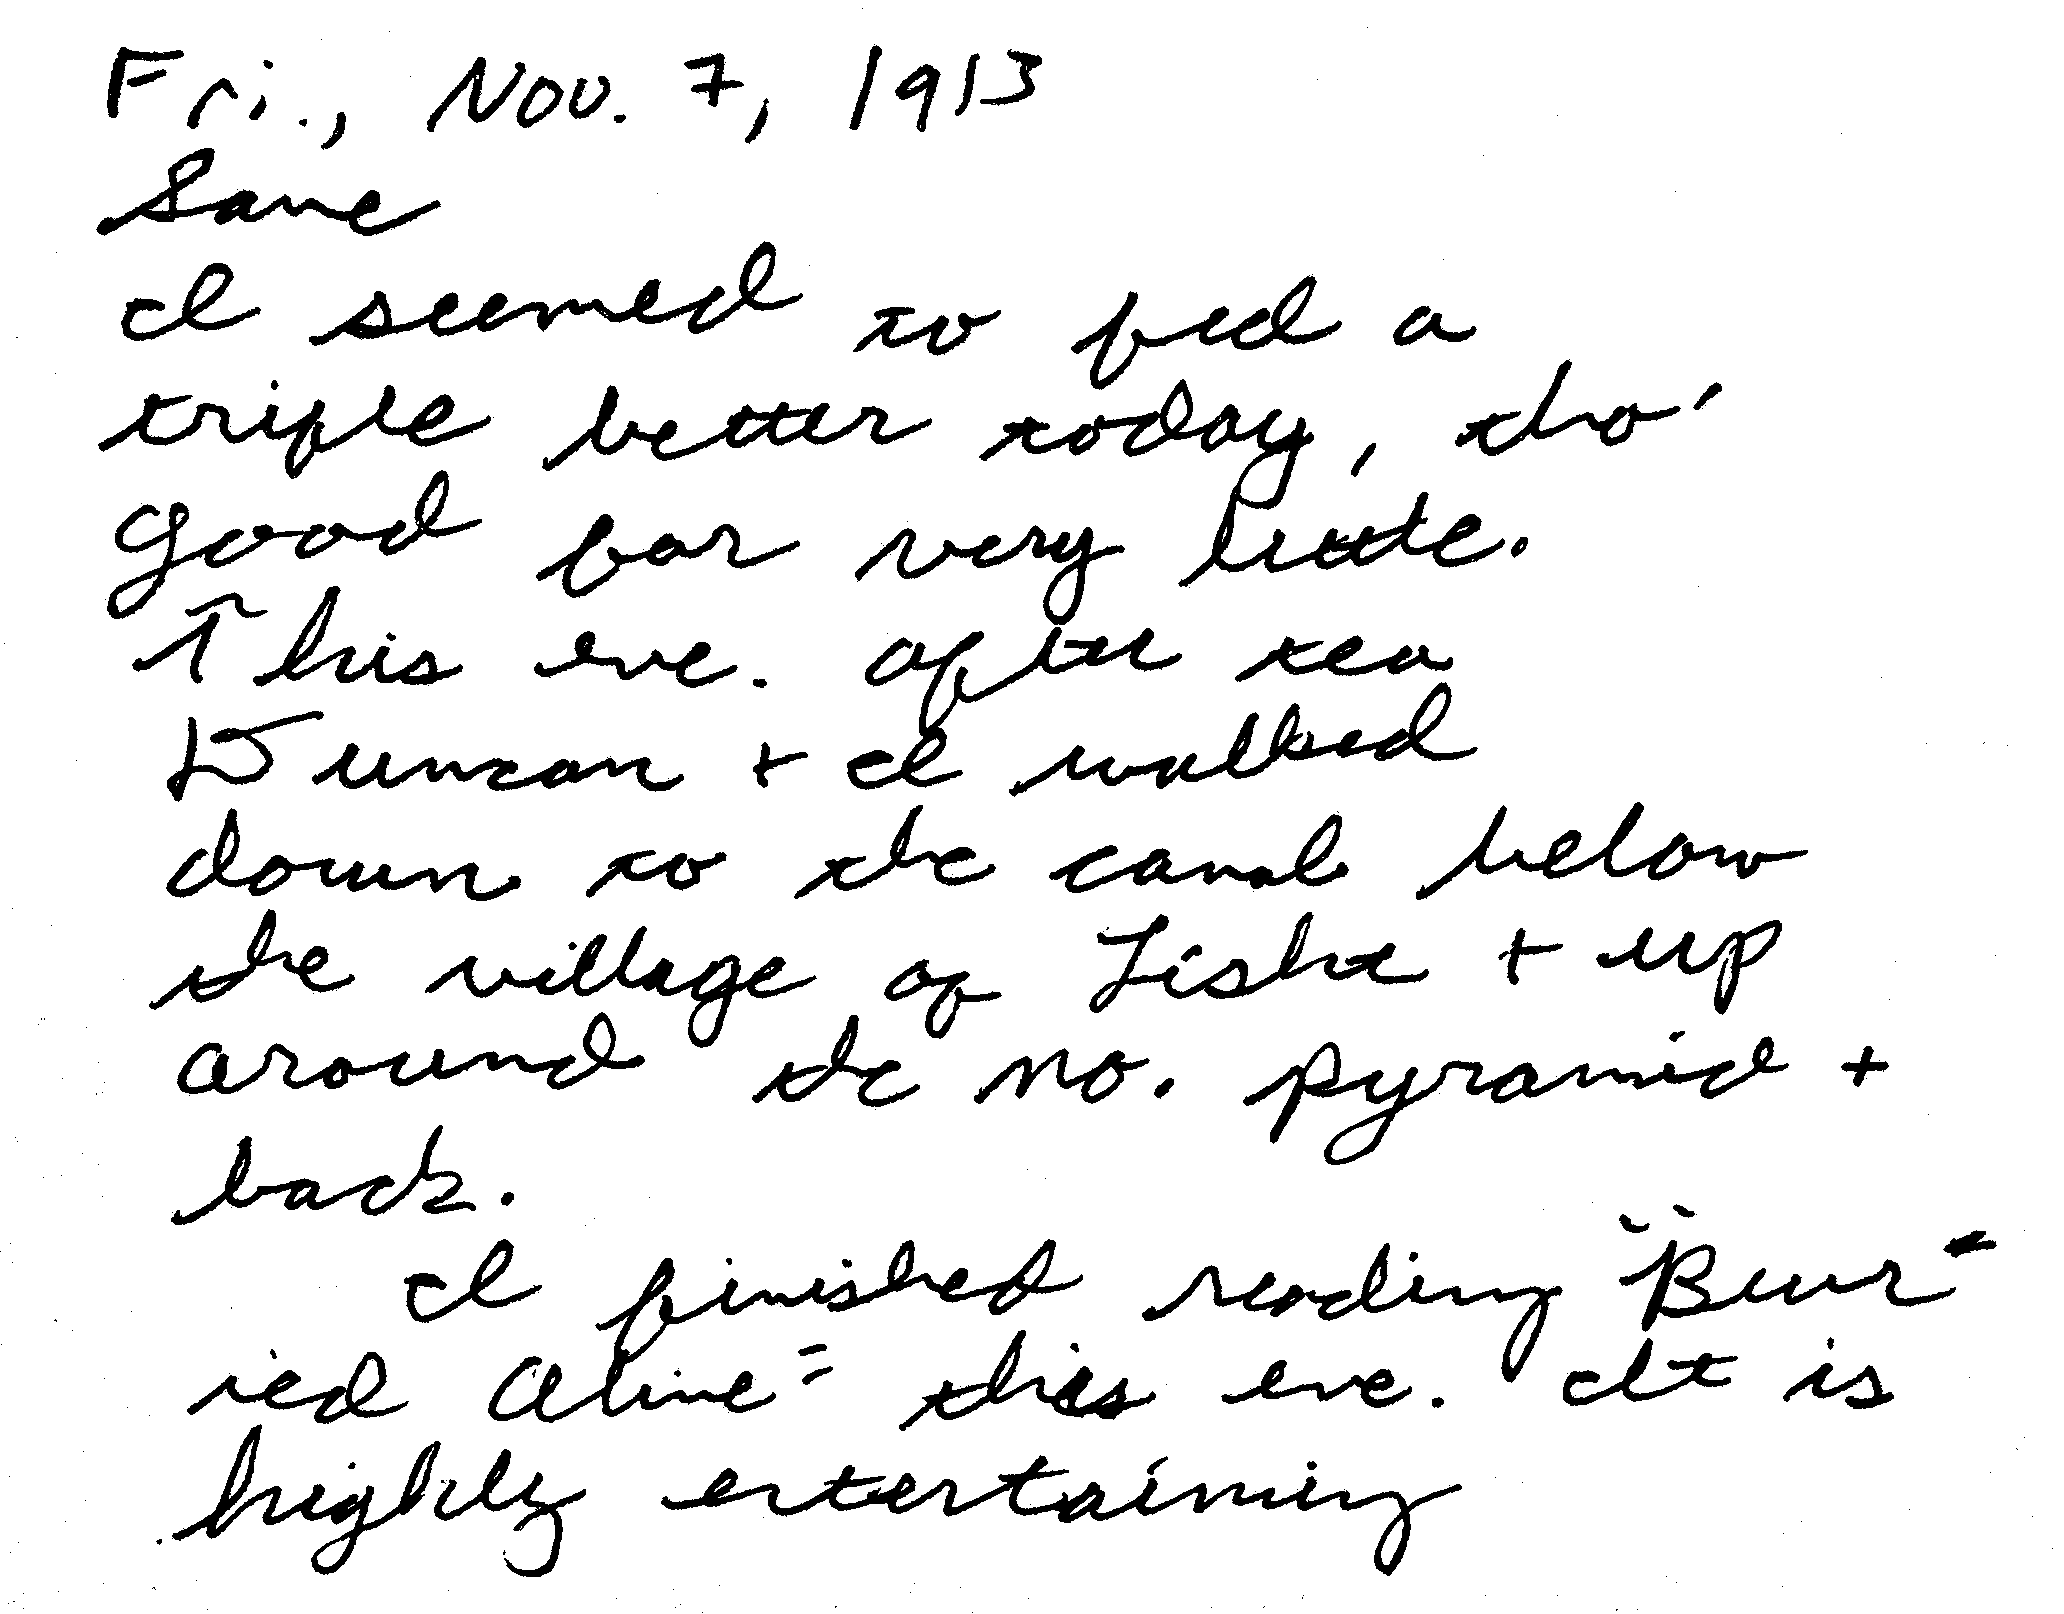 Fri., Nov. 7, 1913
Same
I seemed to feel a
trifle better today, tho'
good for very little.
This eve. after tea
Duncan + I walked
down to the canal below
the village of Lisht + up
around the no. pyramid +
back.
I finished reading "Bur-
ied Alive" this eve. It is
highly entertaining